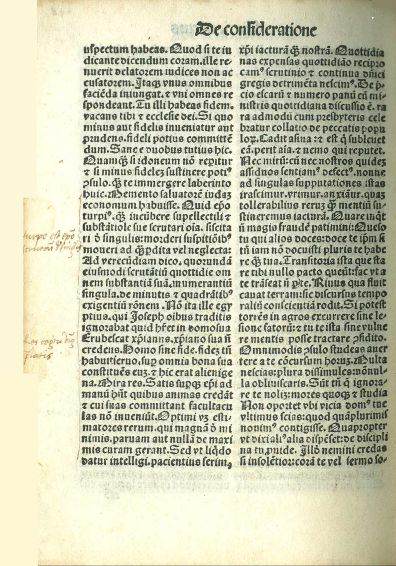 De consideratione
uspectum habeas. Quod si te iu
dicante dicendum coram. ille re
nuerit delatorem iudices non ac
cusatorem. Itaqꝫ vnus omnibus
faciēda iniungat. ⁊ vni omnes re
spondeant. Tu illi habeas fidem.
vacans tibi ⁊ ecclesie dei. Si quo
minus aut fidelis inueniatur aut
prudens. fideli potius committē
dum. Sane e duobus tutius hic.
Quamqꝫ si idoneum nō repitur
⁊ si minus fidelez sustinere poti⁹
ↄsulo. qꝫ te immergere laberinto
huic. Memento saluatorem iudaz
economum habuisse. Quid epō
turpi⁹. qꝫ incūbere supellectili ⁊
substātiole sue scrutari oīa. scisci ta
ri ō singulis: morderi suspitiōib⁹
moueri ad qꝫpdita vel neglecta:
Ad verecūdiam dico. quorundā
eiusmodi scrutātiū quottidie om
nem substantiā suā. numerantiū
singula. de minutis ⁊ quadrātib⁹
exigentiū rōnem. Nō ita ille egy
ptius. qui Joseph oībus traditis
ignorabat quid hr̄et in domo sua
Erubescat xp̄ianus. xp̄iano sua nō
credens. Homo sine fide. fidez tñ
habuit seruo. sup omnia bona sua
constituēs euz. ⁊ hic erat alienige
na. Mira res. Satis supqꝫ ep̄i ad
manū hn̄t quibus animas credāt
⁊ cui suas committant facultacu
las nō inueniūt. Optimi vꝫ esti
matores rerum. qui magnā ō mi
nimis. paruam aut nullā de maxi
mis curam gerant. Sed vt liqꝫdo
datur intelligi. pacientius ferimꝰ
xp̄i iacturā qꝫ nostrā. Quottidia
nas expensas quottidiāo recipro
cam⁹ scrutinio ⁊ continua dn̄ici
gregis detrimēta nescim⁹. De p
cio escarū ⁊ numero panū cū mi
nistris quottidiana discussio ē. ra
ra admodū cum presbyteris cele
bratur collatio de peccatis popu
loꝝ. Cadit asina ⁊ est qꝫ subleuet
eam. perit aīa ⁊ nemo qui reputet.
Nec mirū: cū nec nostros quidez
assiduos sentiam⁹ defect⁹. nonne
ad singulas supputationes īstas
irascimur. vrimur. anxiāur. quā
tollerabilius rerū qꝫ mentiū su
stineremus iacturā. Quare inqꝫt
nō magis fraudē patimini? Queso
tu qui alios doces: doce te ip̄m si
tū iam nō docuisti pluris te habe
re qꝫ tua. Transitoria ista que sta
re tibi nullo pacto queūt: fac vt a
te trāseat nō p te. Riuus qua fluit
cauat terrā: sic discursus tempo
raliū conscientiā rodit. Si potest
torrēs in agros excurrere sine le
sione satorū: ⁊ tu te ista sine vulne
re mentis posse tractare ↄfidito.
Omnimodis ↄsulo studeas auer
tere a te cōcursum horum. Multa
nescias: plura dissimules: nōnul
la obliuiscaris. Sūt tñ qꝫ ignora
re te nolīz: mores quoqꝫ ⁊ studia
Non oportet vbi vicia dom⁹ tue
vltimus scias: quod qꝫplurimis
nouim⁹ contigisse. Quapropter
vt dixi alius alia dispēset: de discipli
na tu puide. Illō nemini credas
si insolētior: corā te vel sermo so-